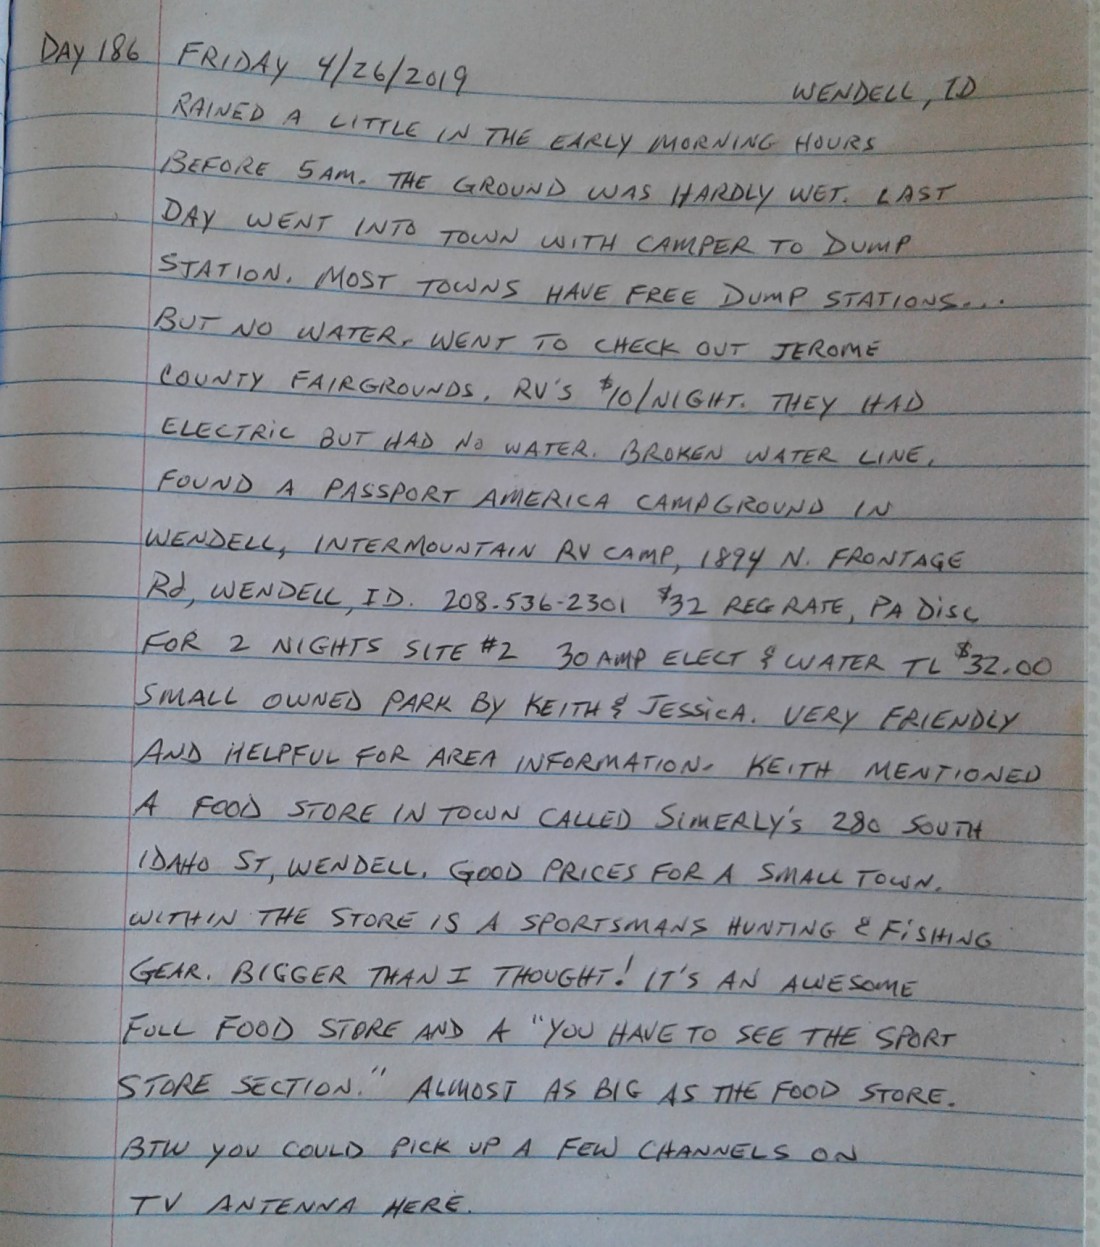 DAY 186 FRIDAY 4/26/2019 WENDELL, ID
RAINED A LITTLE IN THE EARLY MORNING HOURS
BEFORE 5AM. THE GROUND WAS HARDLY WET. LAST
DAY WENT INTO TOWN WITH CAMPER TO DUMP
STATION. MOST TOWNS HAVE FREE DUMP STATIONS...
BUT NO WATER. WENT TO CHECK OUT JEROME
COUNTY FAIRGROUNDS. RV'S $10/NIGHT. THEY HAD
ELECTRIC BUT HAD NO WATER. BROKEN WATER LINE.
FOUND A PASSPORT AMERICA CAMPGROUND IN
WENDELL, INTERMOUNTAIN RV CAMP, 1894 N. FRONTAGE
Rd, WENDELL, ID. 208-536-2301 $32 REG RATE, PA DISC
FOR 2 NIGHTS SITE #2 30 AMP ELECT & WATER TL $32.00
SMALL OWNED PARK BY KEITH & JESSICA. VERY FRIENDLY
AND HELPFUL FOR AREA INFORMATION. KEITH MENTIONED
A FOOD STORE IN TOWN CALLED SIMERLY'S 280 SOUTH
IDAHO ST, WENDELL. GOOD PRICES FOR A SMALL TOWN.
WITHIN THE STORE IS A SPORTSMANS HUNTING & FISHING
GEAR. BIGGER THAN I THOUGHT! IT'S AN AWESOME
FULL FOOD STORE AND A "YOU HAVE TO SEE THE SPORT
STORE SECTION." ALMOST AS BIG AS THE FOOD STORE.
BTW YOU COULD PICK UP A FEW CHANNELS ON
TV ANTENNA HERE.